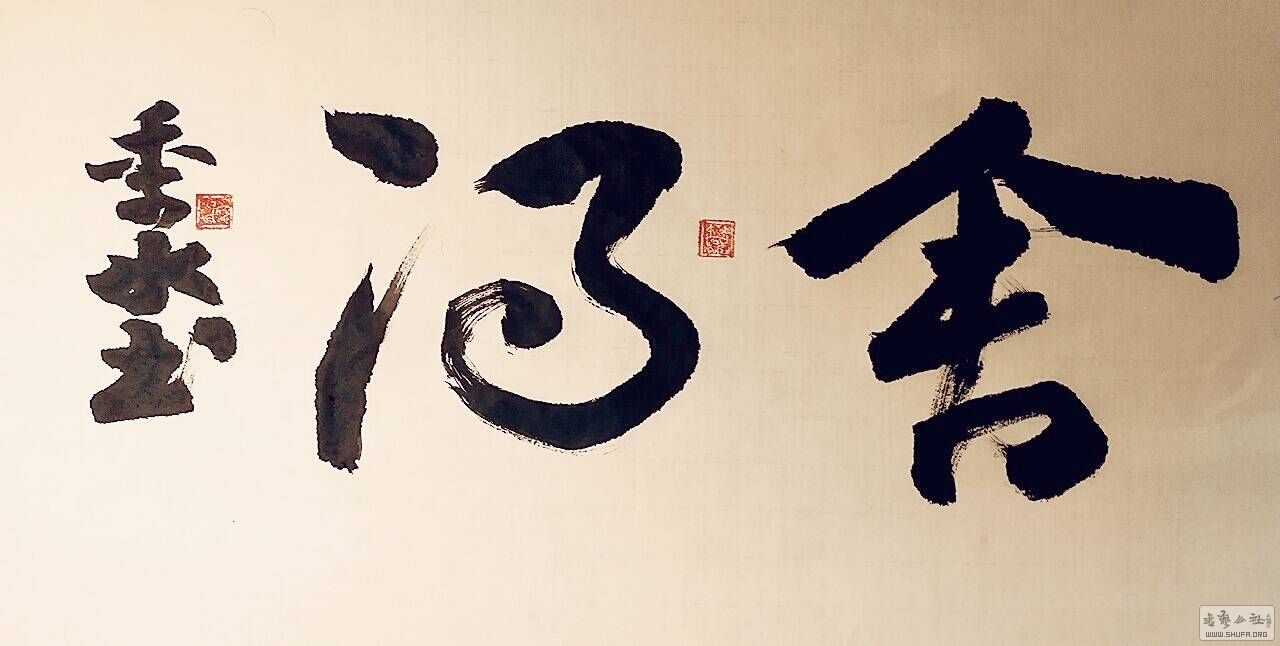 舍得
季水书
书艺公社
WWW.SHUFA.ORG